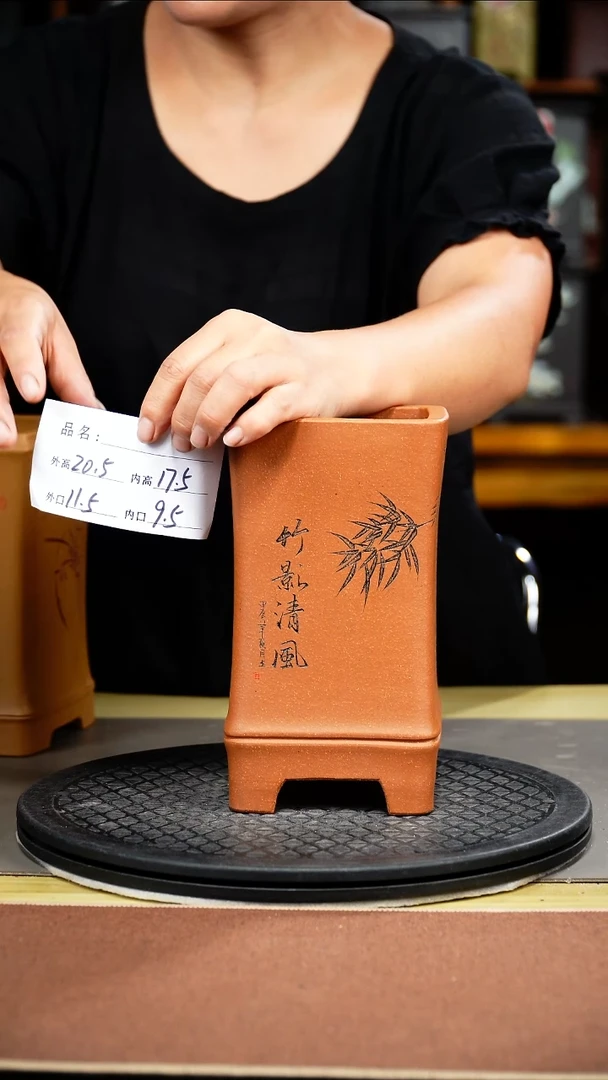 品名：
外高20.5 内高17.5
外口11.5 内口9.5
竹影清風